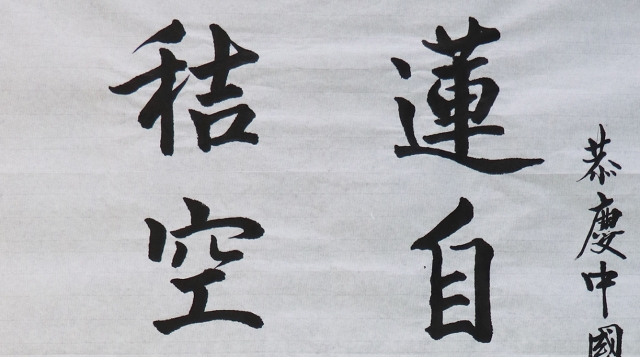 恭慶中國
蓮自
秸空